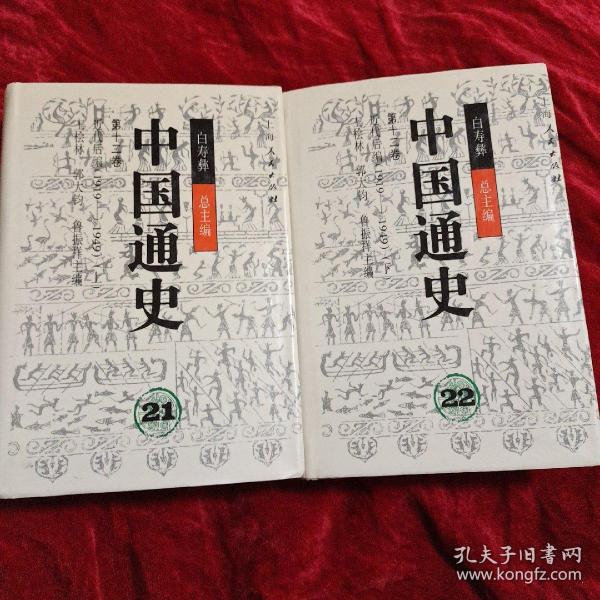 白寿彝 总主编
中国通史
第十二卷
近代后编(1919—1949)(上)
王桧林 郭大钧 鲁振祥主编
上海人民出版社
21
白寿彝 总主编
中国通史
第十二卷
近代后编(1919—1949)(下)
王桧林 郭大钧 鲁振祥主编
上海人民出版社
22
孔夫子旧书网
www.kongfz.com